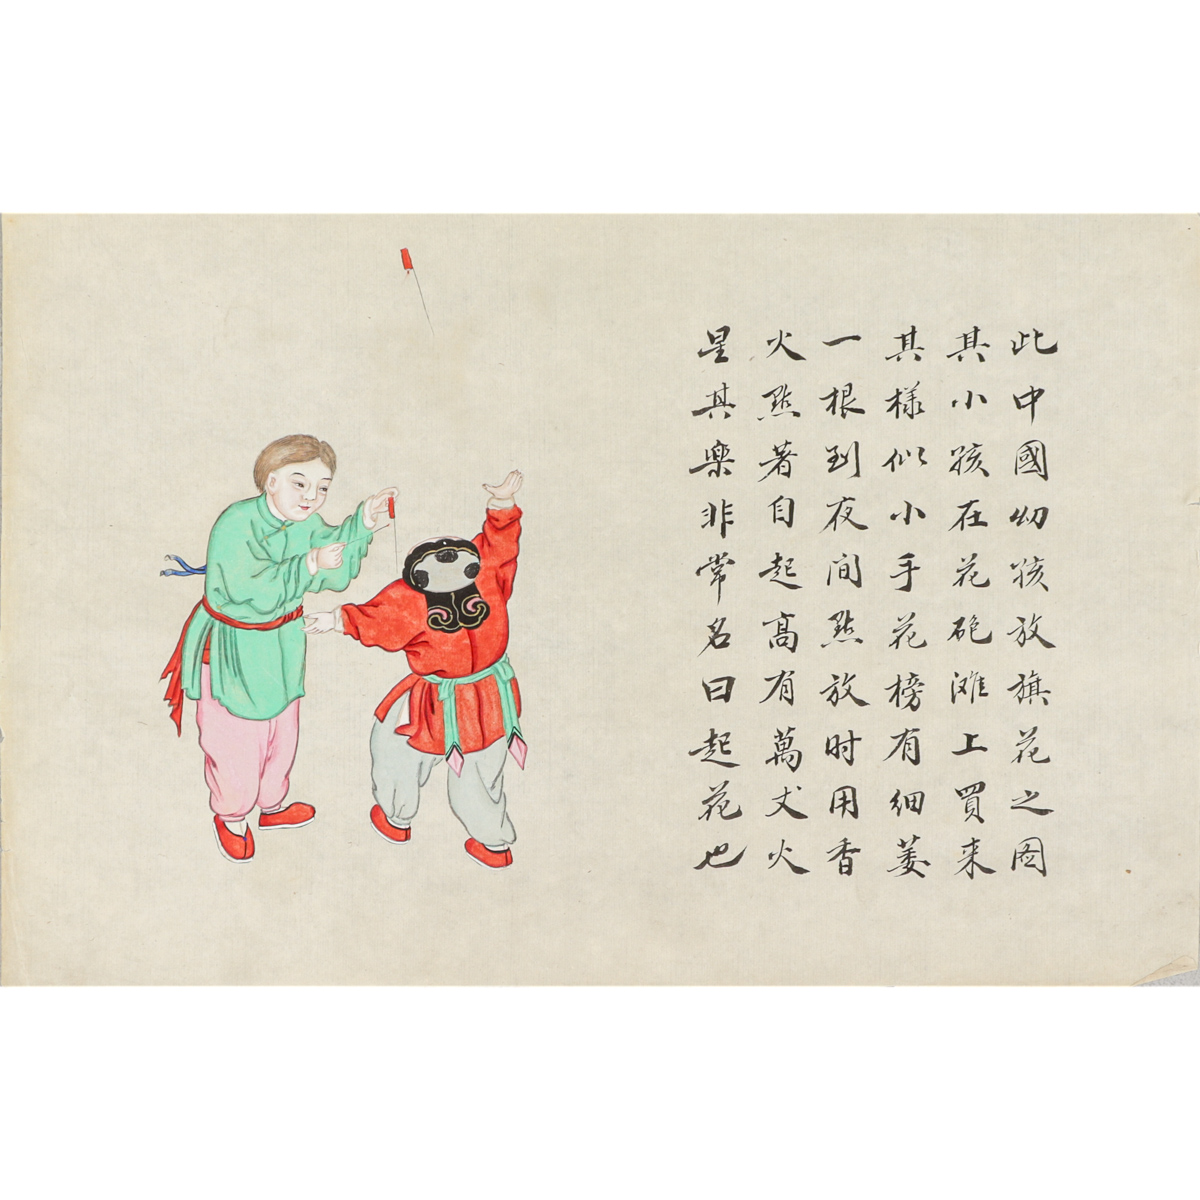 此中國幼孩放旗花之図
其小孩在花砲滩上買来
其様似小手花榜有细萎
一根到夜间點放时用香
火點著自起高有萬丈火
星其樂非常名曰起花也